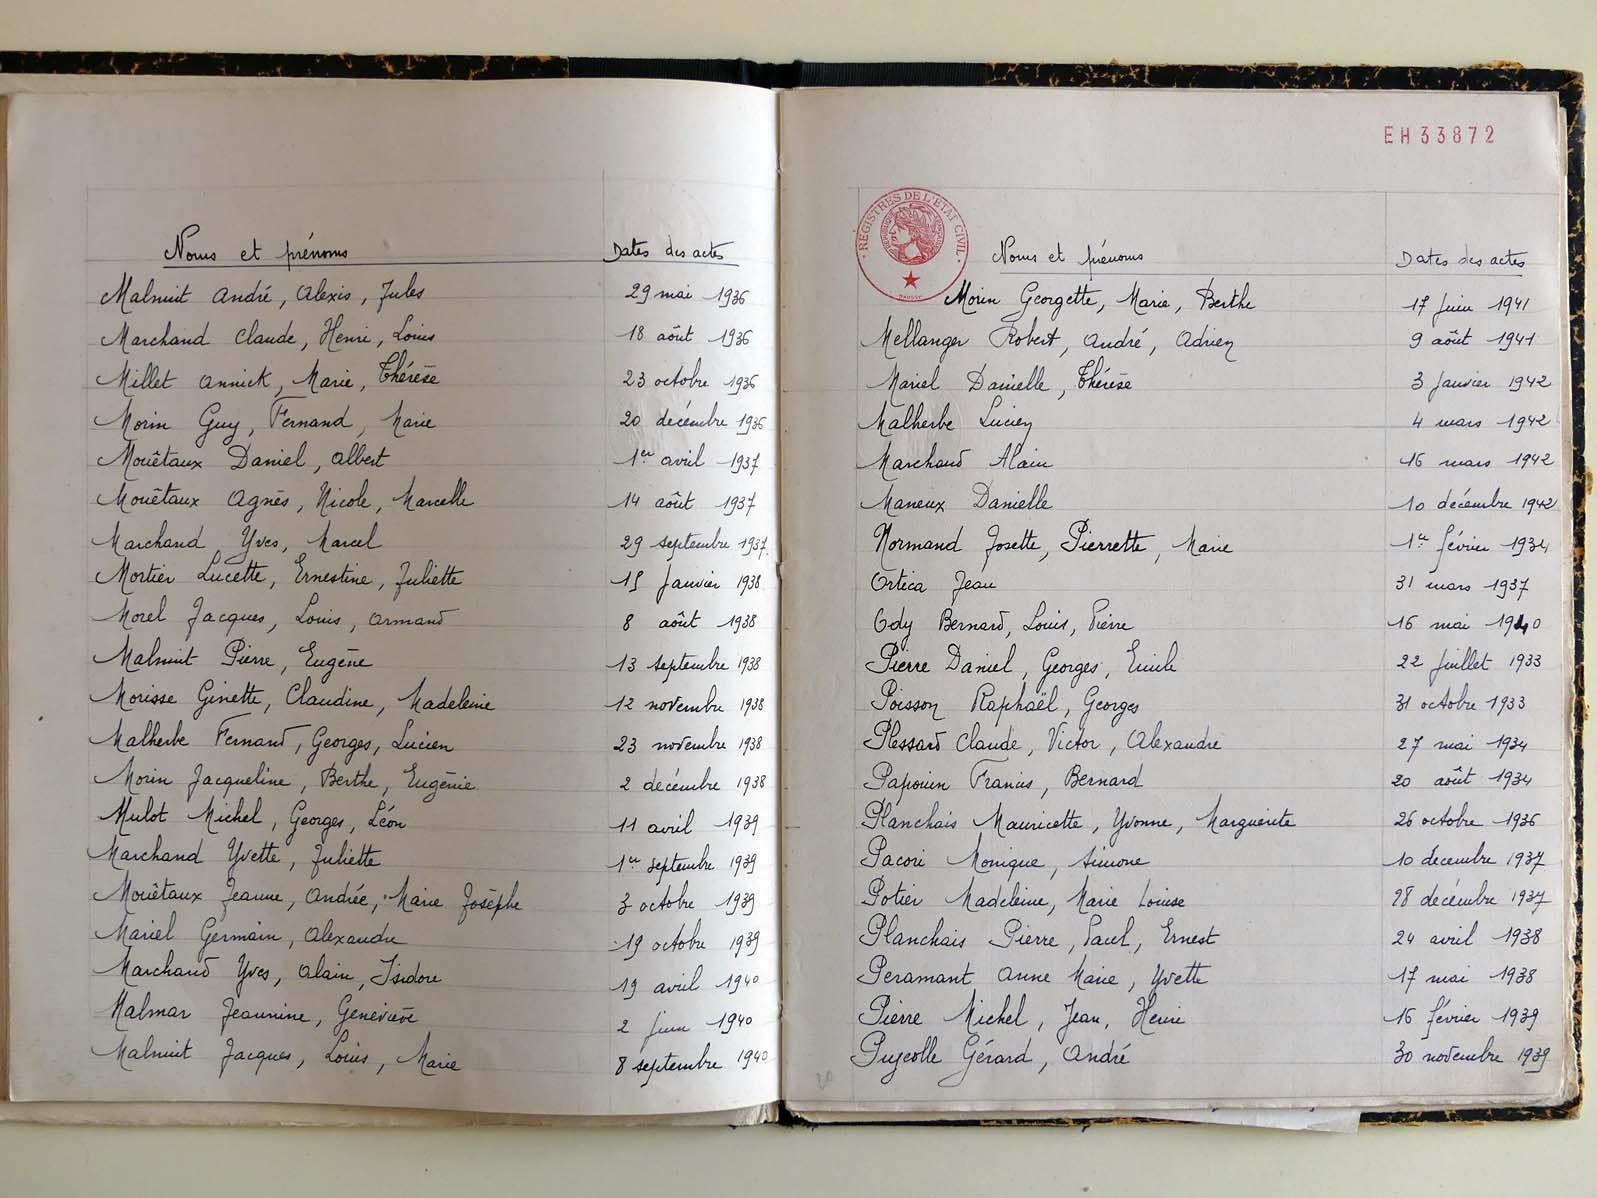 Noms et prénoms Dates des actes
Malnuit André, Alexis, Jules 29 mai 1936
Marchand Claude, Henri, Louis 18 août 1936
Millet Annick, Marie, Thérèse 23 octobre 1936
Morin Guy, Fernand, Marie 20 décembre 1936
Mouêtaux Daniel, Albert 1er avril 1937
Mouêtaux Agnès, Nicole, Marcelle 14 août 1937
Marchand Yves, Marcel 29 septembre 1937
Mortier Lucette, Ernestine, Juliette 15 Janvier 1938
Morel Jacques, Louis, Armand 8 août 1938
Malnuit Pierre, Eugène 13 septembre 1938
Morisse Ginette, Claudine, Madeleine 12 novembre 1938
Malherbe Fernand, Georges, Lucien 23 novembre 1938
Morin Jacqueline, Berthe, Eugénie 2 décembre 1938
Mulot Michel, Georges, Léon 11 avril 1939
Marchand Yvette, Juliette 1er septembre 1939
Mouêtaux Jeanne, Andrée, Marie Josèphe 3 octobre 1939
Mariel Germain, Alexandre 19 octobre 1939
Marchand Yves, Alain, Isidore 19 avril 1940
Malmar Jeannine, Geneviève 2 Juin 1940
Malnuit Jacques, Louis, Marie 8 septembre 1940
EH33872
REGISTRES DE L'ETAT CIVIL
REPUBLIQUE FRANÇAISE
Noms et prénoms Dates des actes
Morin Georgette, Marie, Berthe 17 Juin 1941
Mellanger Robert, André, Adrien 9 août 1941
Mariel Danielle, Thérèse 3 Janvier 1942
Malherbe Lucien 4 mars 1942
Marchand Alain 16 mars 1942
Maneux Danielle 10 décembre 1942
Normand Josette, Pierrette, Marie 1er février 1934
Ortica Jean 31 mars 1937
Ody Bernard, Louis, Pierre 16 mai 1940
Pierre Daniel, Georges, Emile 22 Juillet 1933
Poisson Raphaël, Georges 31 octobre 1933
Plessard Claude, Victor, Alexandre 27 mai 1934
Papouin Francis, Bernard 20 août 1934
Planchais Mauricette, Yvonne, Marguerite 26 octobre 1936
Pacori Monique, Simone 10 décembre 1937
Potier Madeleine, Marie Louise 28 décembre 1937
Planchais Pierre, Paul, Ernest 24 avril 1938
Peramant Anne Marie, Yvette 17 mai 1938
Pierre Michel, Jean, Henri 16 février 1939
Pujeolle Gérard, André 30 novembre 1939